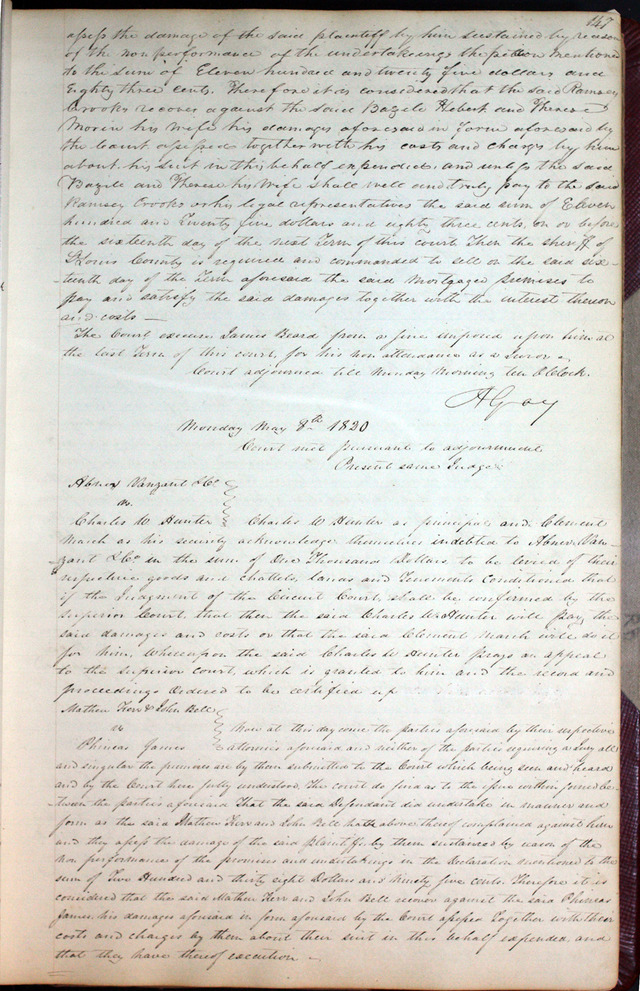 147
assess the damage of the said plaintiff by him sustained by reason
of the non performance of the undertakings the petition mentioned
to the sum of Eleven hundred and twenty five dollars and
Eighty three cents. Therefore it is considered that the said Ramsey
Crooks recover against the said Bazile Hebert and Therese
Morin his wife his damages aforesaid in form aforesaid by
the court assessed together with his costs and charges by him
about his suit in this behalf expended, and unless the said
Bazile and Therese his Wife shall well and truly pay to the said
Ramsey Crooks or his legal representatives the said sum of Eleven
hundred and Twenty five dollars and eighty three cents, on or before
the sixteenth day of the next Term of this court Then the sheriff of
St Louis County is required and commanded to sell on the said six-
teenth day of the Term aforesaid the said Mortgaged premises to
pay and satisfy the said damages together with the interest thereon
and costs —
The Court excuses James Beard from a fine imposed upon him at
the last Term of this court, for his non attendance as a Juror.
Court adjourned till Monday Morning ten O'Clock.
A Gray
Monday May 8th 1820
Court met pursuant to adjournment
Present same Judge
Abner Vanzant & Co
vs.
Charles W Hunter Charles W Hunter as principal and Clement
March as his security acknowledge themselves indebted to Abner Van-
zant & Co in the sum of One Thousand Dollars to be levied of their
respective goods and chattels, lands and Tenements conditioned that
if the Judgment of the Circuit Court, shall be confirmed by the
Superior Court, that then the said Charles W Hunter will pay the
said damages and costs or that the said Clement March will do it
for him, Whereupon the said Charles W Hunter prays an appeal
to the superior court, which is granted to him and the record and
proceedings ordered to be certified up
Mathew Kerr & John Bell
vs
Now at this day come the parties aforesaid by their respective
Phineas James attornies aforesaid and neither of the parties requiring a Jury all
and singular the premises are by them submitted to the Court which being seen and heard
and by the Court here fully understood. The court do find as to the issue within joined be-
tween the parties aforesaid That the said Defendant did undertake in manner and
form as the said Mathew Kerr and John Bell hath above thereof complained against him
and they assess the damage of the said plaintiffs by them sustained by reason of the
non performance of the promises and undertakings in the Declaration mentioned to the
sum of Two Hundred and thirty eight Dollars and Ninety five cents. Therefore it is
considered that the said Mathew Kerr and John Bell recover against the said Phineas
James, his damages aforesaid in form aforesaid by the Court assessed Together with their
costs and charges by them about their suit in this behalf expended, and
that they have thereof execution —